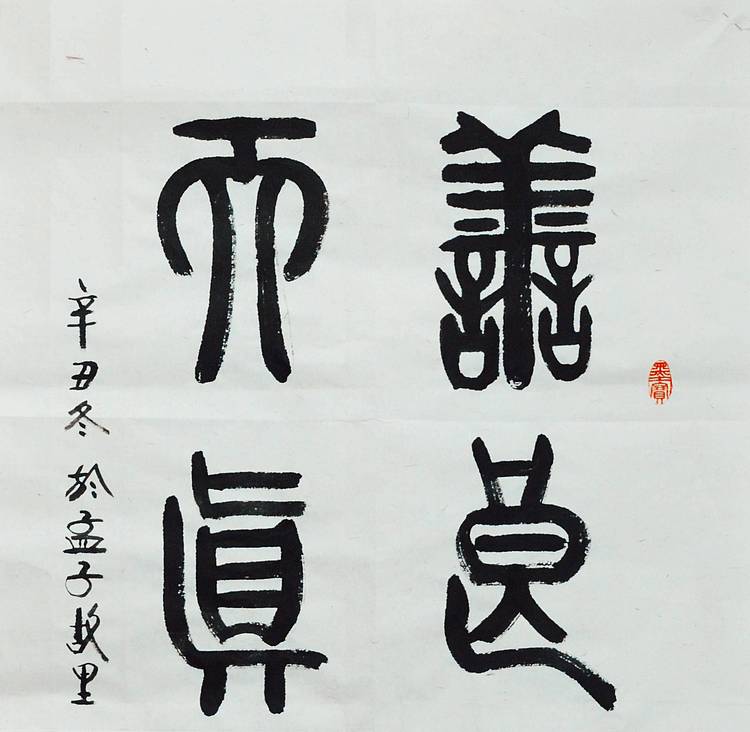 善良
天真
辛丑冬於孟子故里